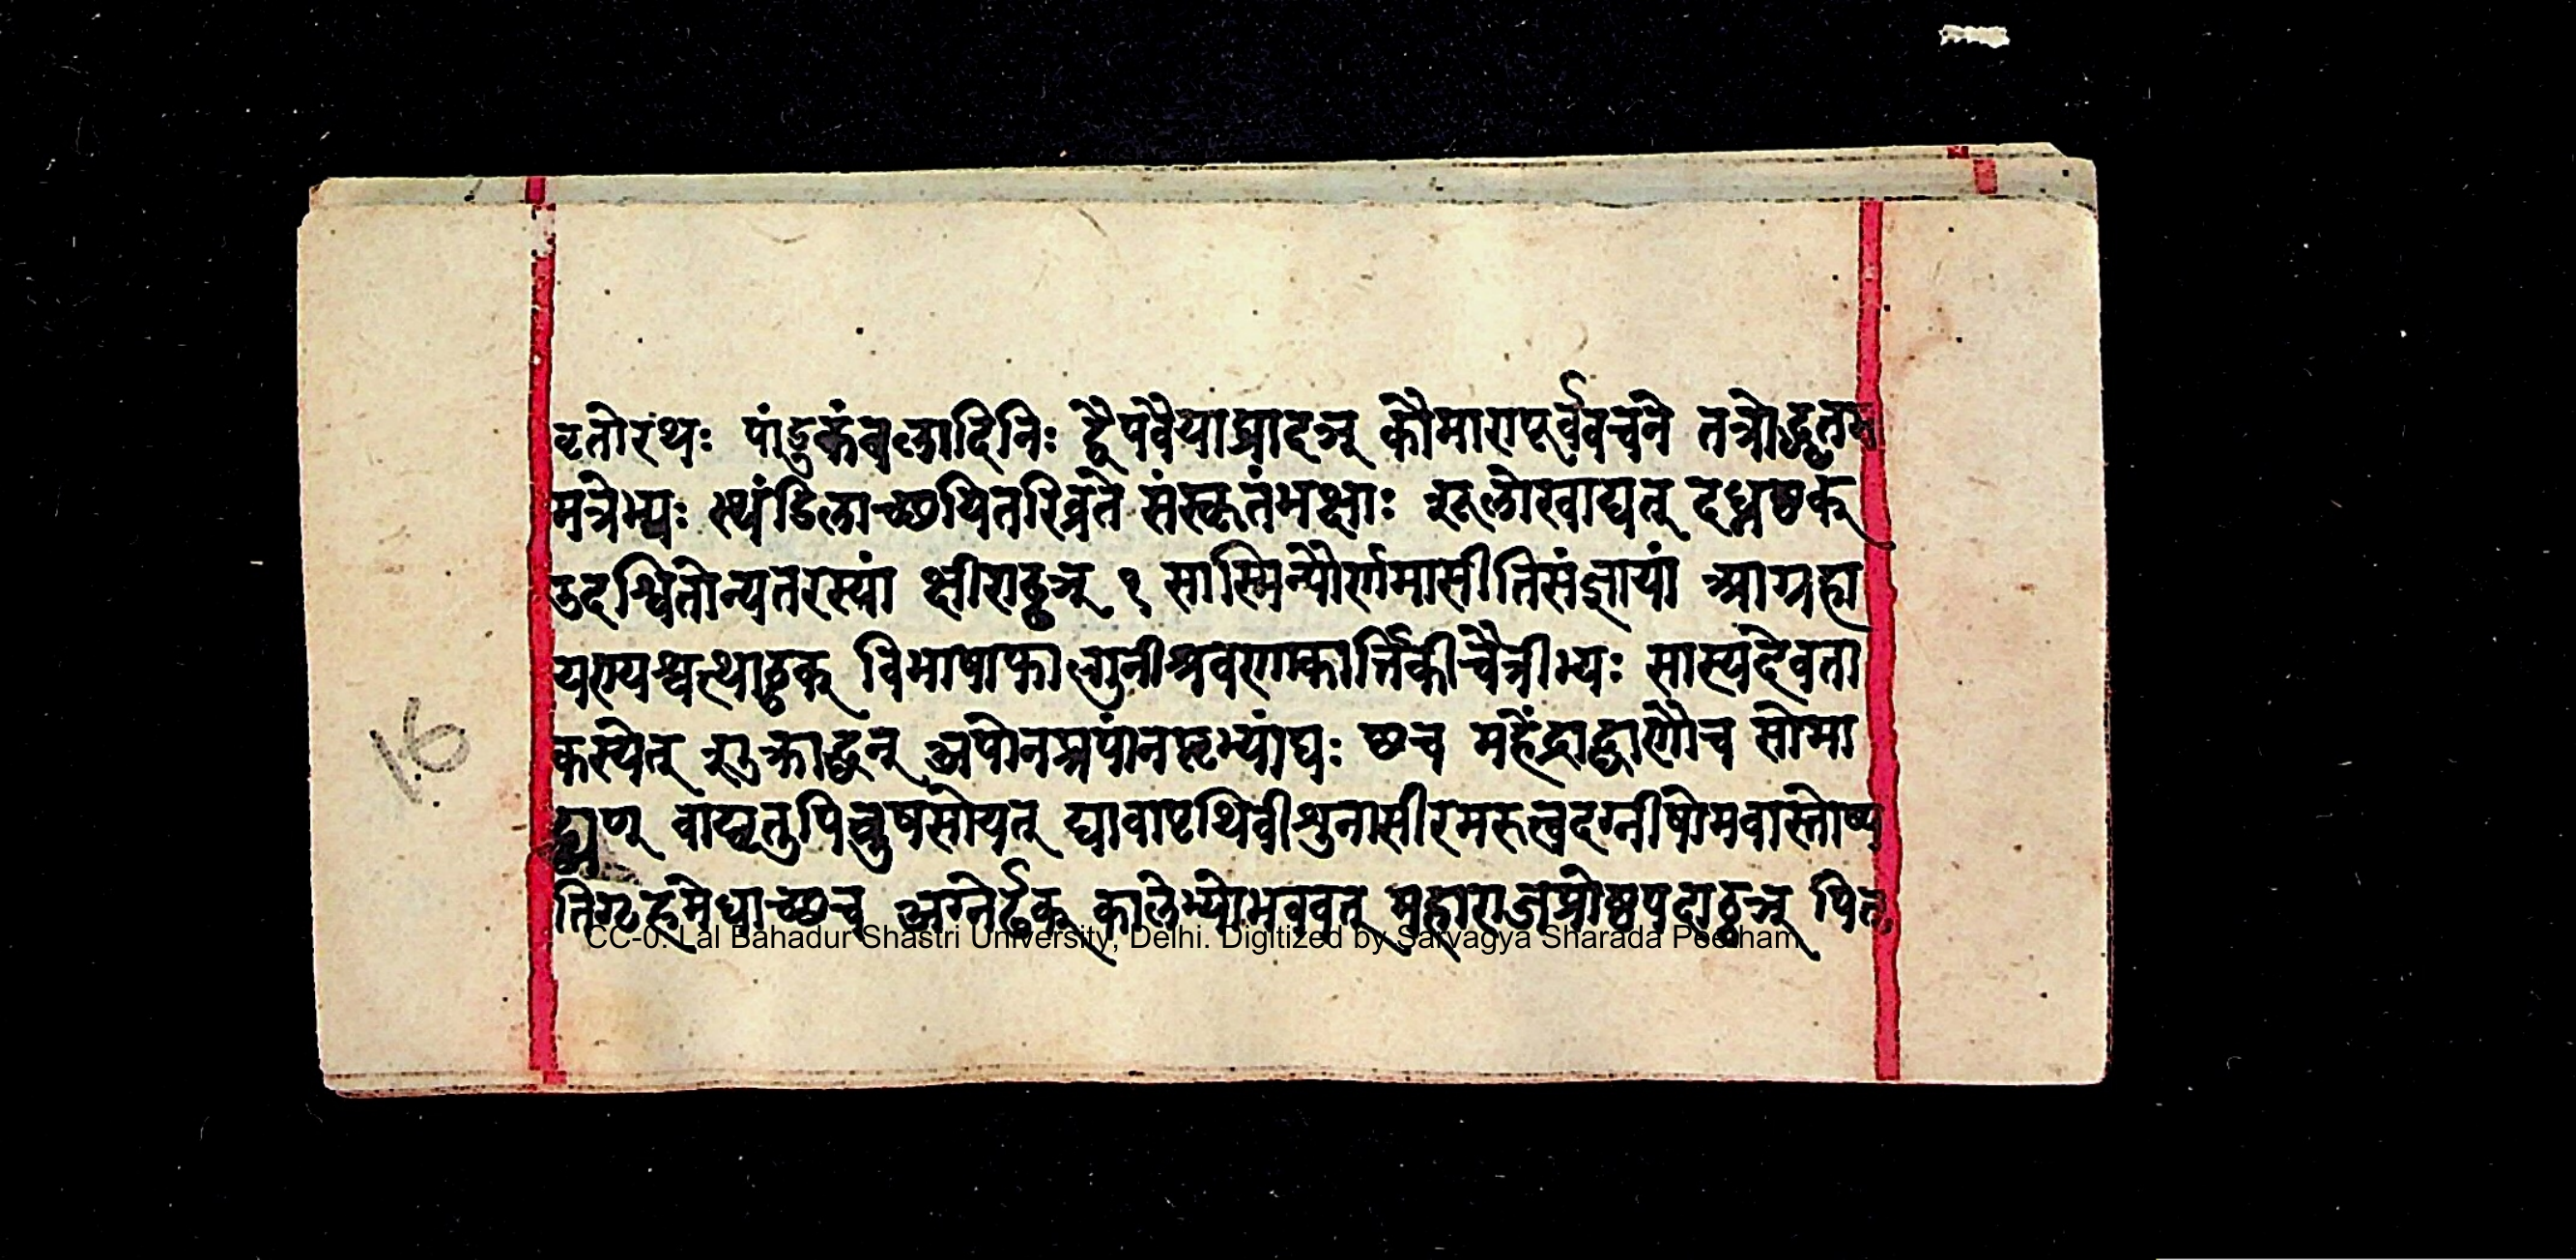 वृतोरथः पांडुकंबलादिनिः द्वैपवैयाघ्रादञ् कौमारापूर्ववचने तत्रोद्धृतम
मत्रेभ्यः स्थंडिलाच्छयितरिव्रते संस्कृतंभक्षाः शूलोखाद्यत् दध्नष्ठक्
उदश्वितोन्यतरस्यां क्षीराढ्ढञ् १ सास्मिन्पौर्णमासीतिसंज्ञायां आग्रहा
यण्यश्वत्थाठ्ठक् विभाषाफाल्गुनीश्रवणाकार्त्तिकीचैत्रीभ्यः सास्यदेवता
कस्येत् शुक्राद्घन् अपोनप्त्रपांनप्तृभ्यांघः छच महेंद्राद्घाणौच सोमा
ट्ट्यण् वाय्वृतुपित्रुषसोयत् द्यावापृथिवीशुनासीरमरुत्वदग्नीषोमवास्तोष्प
तिगृहमेधाच्छच अग्नेर्ढक् कालेभ्योभववत् महाराजप्रोष्ठपदाठ्ठञ् पितृ
16
CC-0. Lal Bahadur Shastri University, Delhi. Digitized by Sarvagya Sharada Peetham